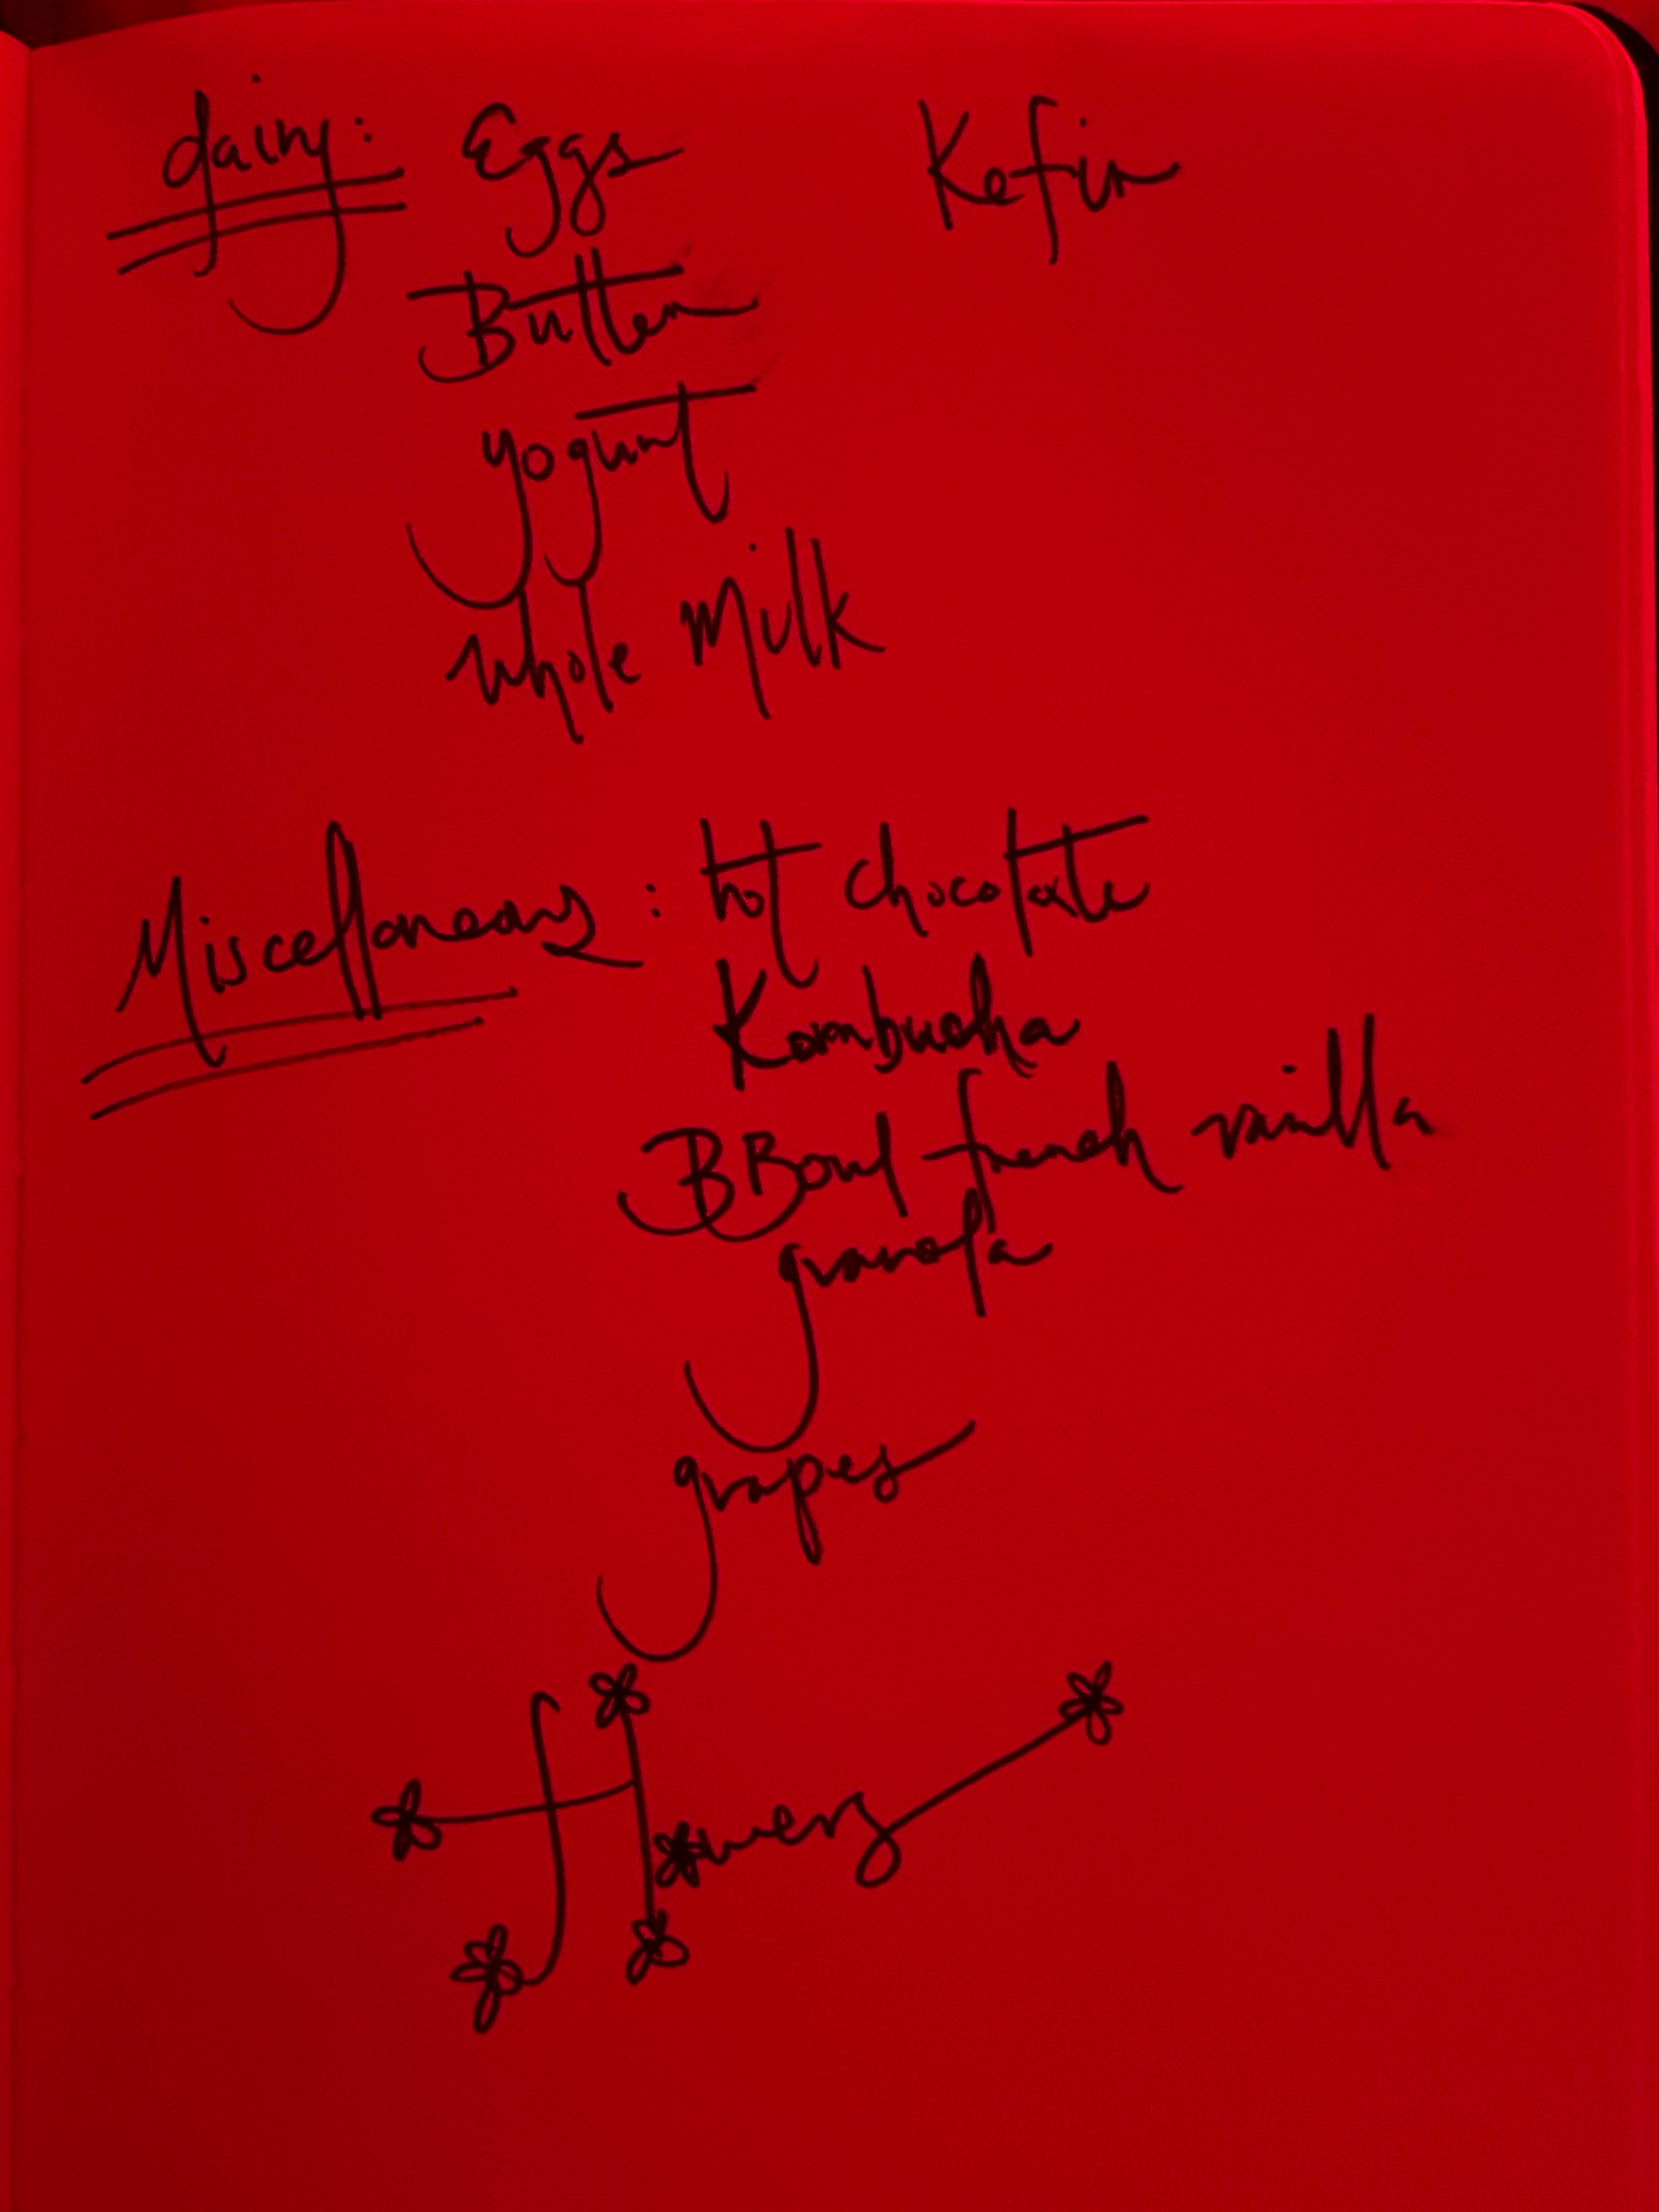 dairy: Eggs Kefir
Butter
yogurt
whole milk
Miscellaneous: hot chocolate
Kombucha
BBowl french vanilla
granola
grapes
flowers